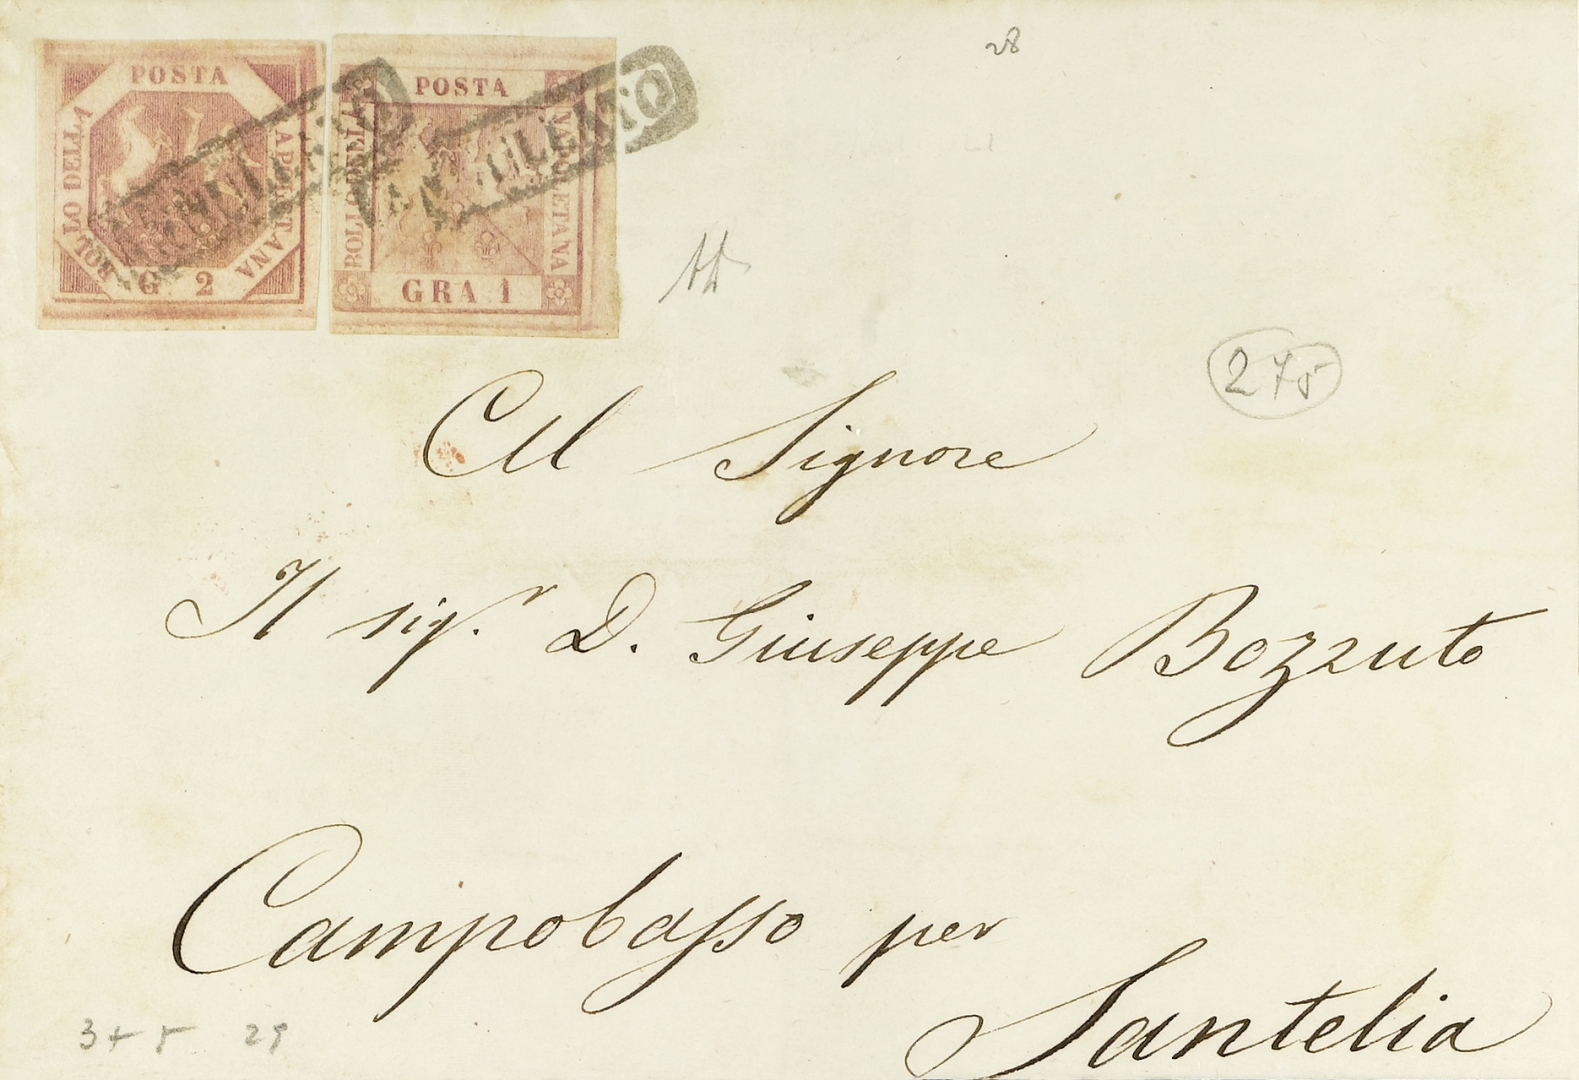 28
POSTA
BOLLO DELLA
NAPOLETANA
G 2
POSTA
BOLLO DELLA
NAPOLETANA
GRA 1
ANNULLATO
ANNULLATO
275
Al Signore
Il sig.r D. Giuseppe Bozzuto
Campobasso per
Santelia
3 + 5 29